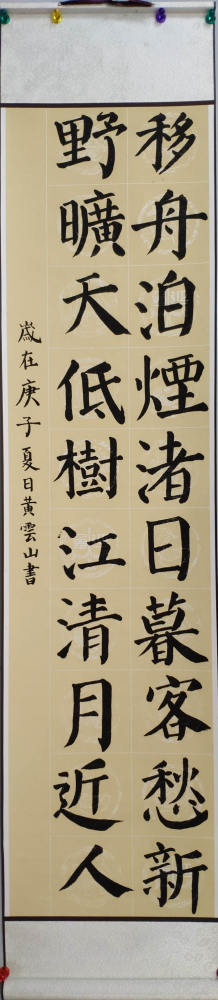 移舟泊煙渚日暮客愁新
野曠天低樹江清月近人
歲在庚子夏日黄雲山書